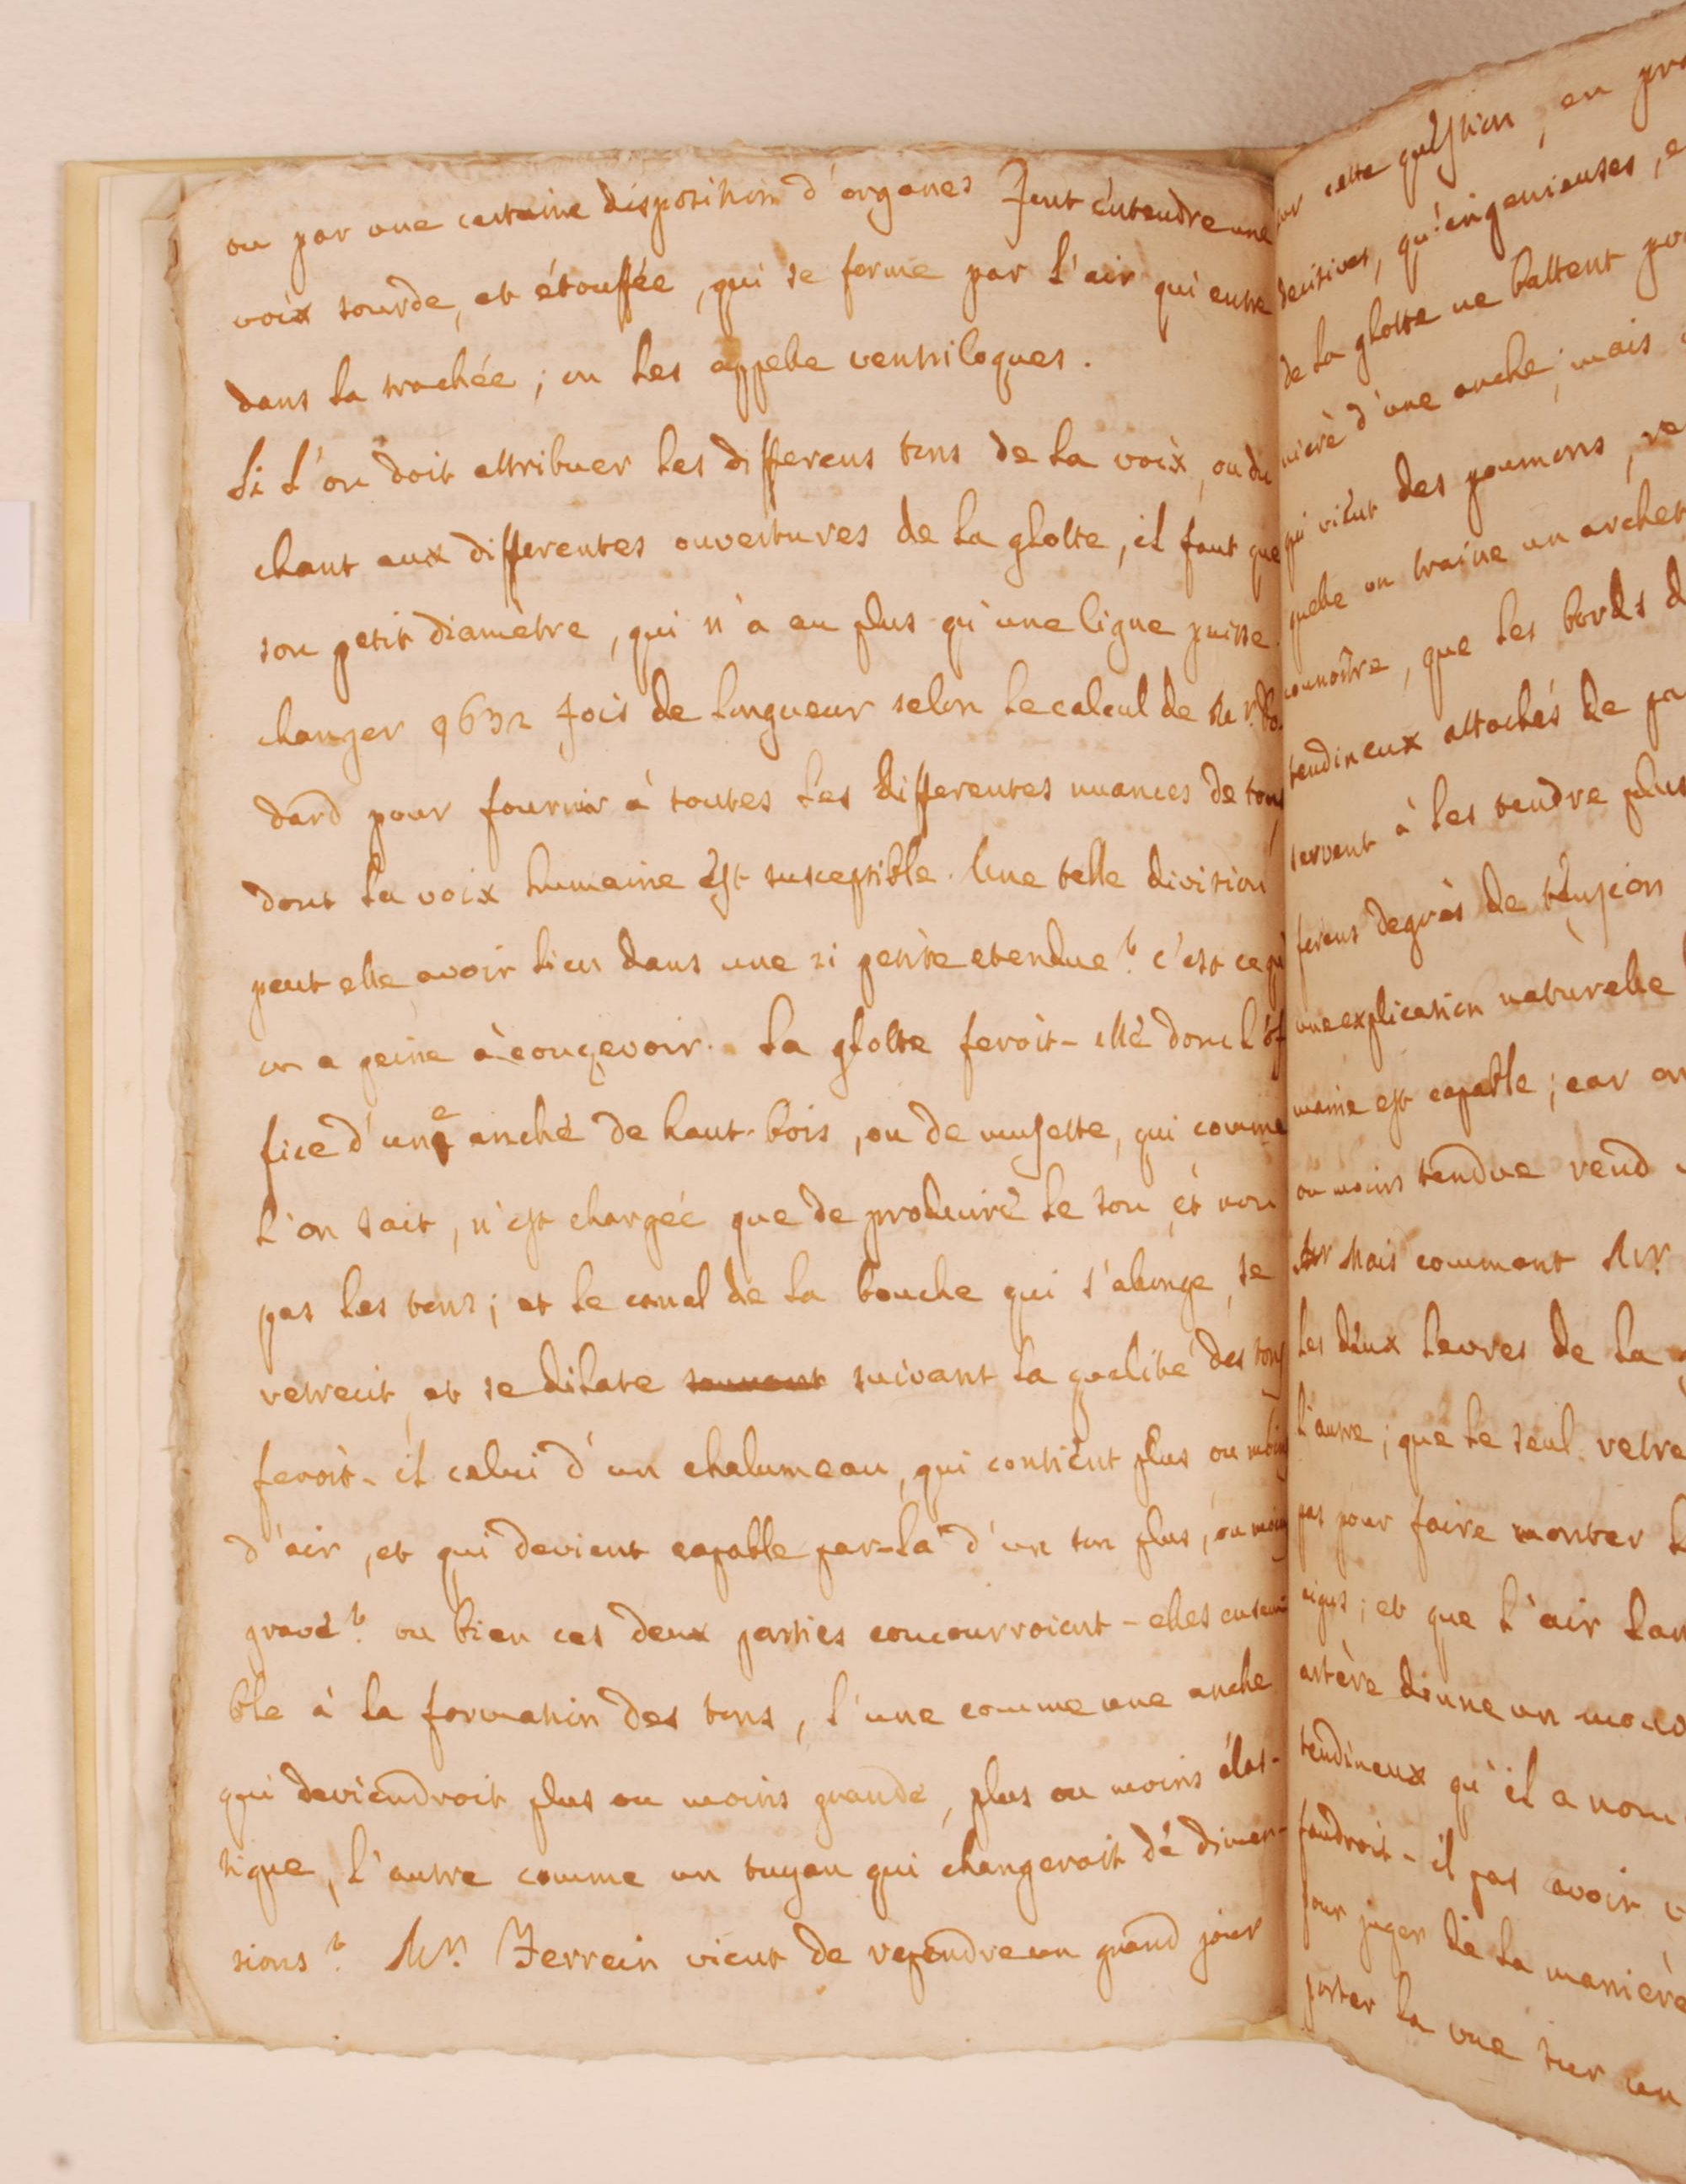 ou par une certaine disposition d'organes font entendre une
voix sourde, et étouffée, qui se forme par l'air qui entre
dans la trachée; on les appelle ventriloques.
Si l'on doit attribuer les differens tons de la voix, ou du
chant aux differentes ouvertures de la glotte, il faut que
son petit diamètre, qui n'a au plus qu'une ligne puisse
changer 9632 fois de longueur selon le calcul de Mr. Do-
dard pour fournir à toutes les differentes nuances de tons
dont la voix humaine est susceptible. Une telle division
peut elle avoir lieu dans une si petite etendue? c'est ce qu'
on a peine à conçevoir. La glotte feroit-elle donc l'of
fice d'une anche de haut-bois, ou de musette, qui comme
l'on sait, n'est chargée que de produire le son et non
pas les tons; et le canal de la bouche qui s'alonge, se
retrecit et se dilate suivant la qualité des tons
feroit-il celui d'un chalumeau, qui contient plus ou moins
d'air, et qui devient capable par-là d'un ton plus, ou moins
grave? ou bien ces deux parties concourroient-elles ensem
ble à la formation des tons, l'une comme une anche
qui deviendroit plus ou moins grande, plus ou moins élas-
tique, l'autre comme un tuyau qui changeroit de dimen-
sions? Mr. Ferrein vient de repandre un grand jour
sur cette question, en
decisives, qu'ingenieuses,
de la glotte ne battent
niere d'une anche; mais
qui vient des poumons,
quelle on traine un archet
connoître, que les bords
tendineux attachés de
servent à les tendre plus
ferens degrés de tension
une explication naturelle
maine est capable; car on
ou moins tendue rend
Mais comment Mr.
les deux levres de la
l'autre; que le seul
pas pour faire monter
aigus; et que l'air
artère donne un
tendineux qu'il a
faudroit-il pas avoir
pour juger de la manière
porter la vue sur un